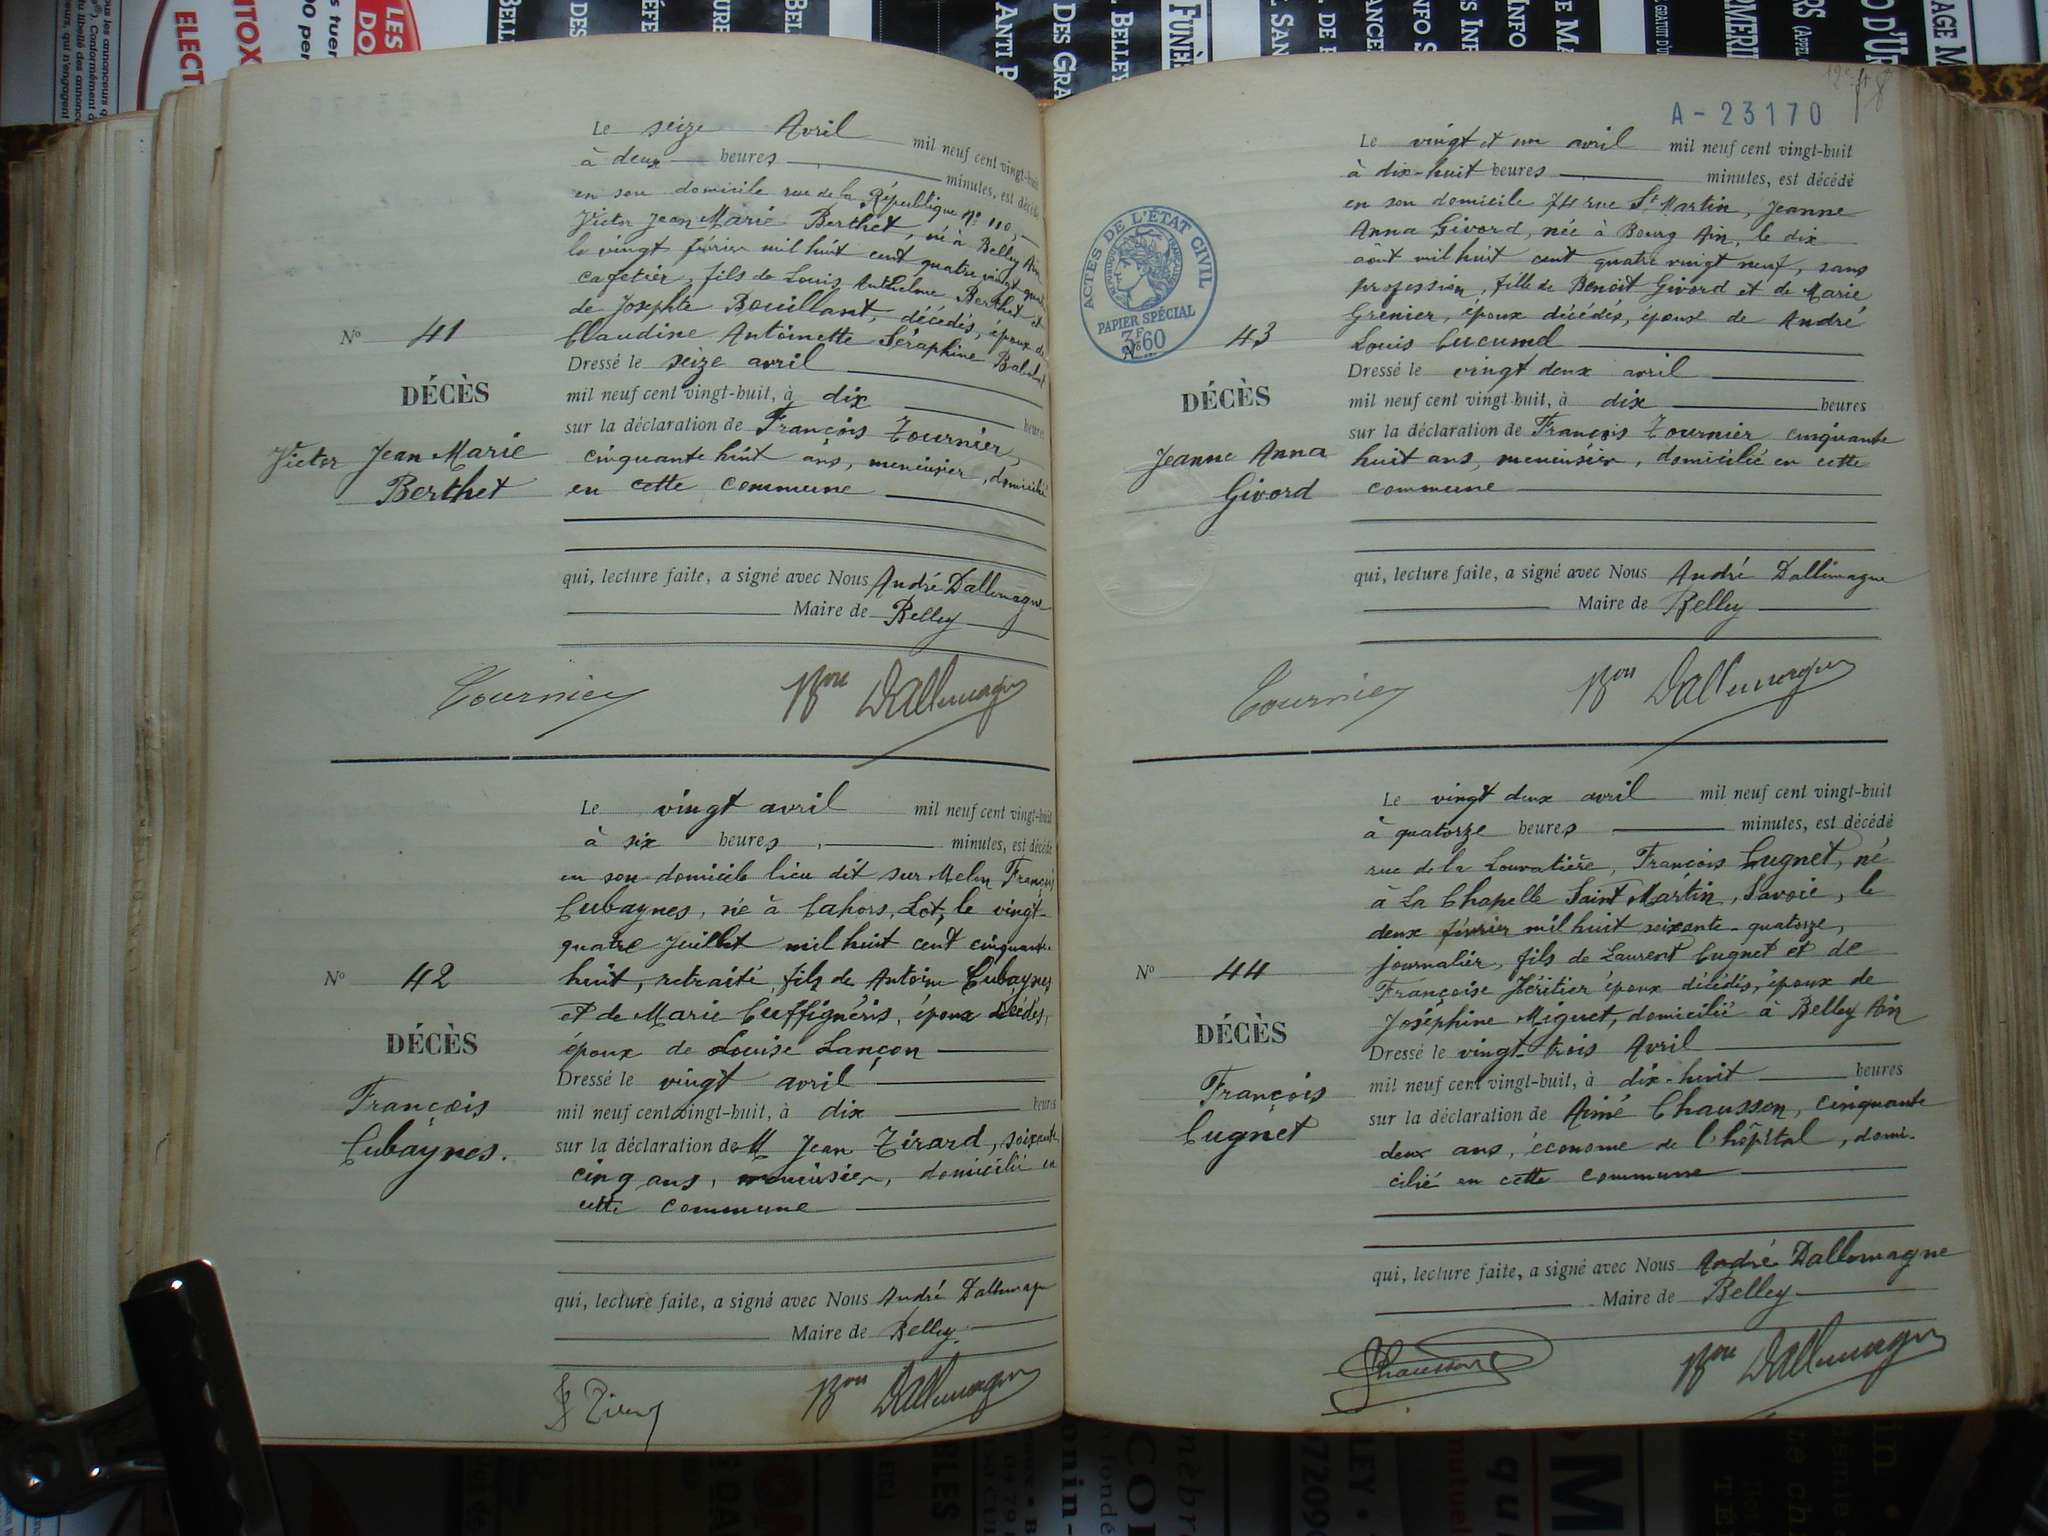 Le seize Avril mil neuf cent vingt-huit
à deux heures minutes, est décédé
en son domicile rue de la République No 110,
Victor Jean Marie Berthet, né à Belley Ain
le vingt février mil huit cent quatre vingt
cafetier, fils de Louis Anthelme Berthet et
de Josephte Bouillant, décédés, époux de
Claudine Antoinette Séraphine
No 41
DÉCÈS
Victor Jean Marie
Berthet
Dressé le seize avril
mil neuf cent vingt-huit, à dix heures
sur la déclaration de François Tournier,
cinquante huit ans, menuisier, domicilié
en cette commune
qui, lecture faite, a signé avec Nous André Dallemagne
Maire de Belley
Tournier Bon Dallemagne
Le vingt avril mil neuf cent vingt-huit
à six heures, minutes, est décédé
en son domicile lieu dit sur Melon François
Cubaynes, né à Cahors, Lot, le vingt-
quatre Juillet mil huit cent cinquante
huit, retraité, fils de Antoine Cubaynes
et de Marie époux décédés,
époux de Louise Lançon
No 42
DÉCÈS
François
Cubaynes.
Dressé le vingt avril
mil neuf cent vingt-huit, à dix heures
sur la déclaration de M Jean Tirard, soixante
cinq ans, menuisier, domicilié en
cette commune
qui, lecture faite, a signé avec Nous André Dallemagne
Maire de Belley
Bon Dallemagne
A-23170
Le vingt et un avril mil neuf cent vingt-huit
à dix-huit heures minutes, est décédé
en son domicile 74 rue St Martin, Jeanne
Anna Givord, née à Bourg Ain, le dix
août mil huit cent quatre vingt neuf, sans
profession, fille de Benoit Givord et de Marie
Grenier, époux décédés, épouse de André
Louis Cucumel
ACTES DE L'ÉTAT CIVIL
PAPIER SPÉCIAL
3F60
No 43
DÉCÈS
Jeanne Anna
Givord
Dressé le vingt deux avril
mil neuf cent vingt-huit, à dix heures
sur la déclaration de François Tournier cinquante
huit ans, menuisier, domicilié en cette
commune
qui, lecture faite, a signé avec Nous André Dallemagne
Maire de Belley
Tournier Bon Dallemagne
Le vingt deux avril mil neuf cent vingt-huit
à quatorze heures minutes, est décédé
rue de la Louvatière, François Cugnet, né
à La Chapelle Saint Martin, Savoie, le
deux février mil huit seixante-quatorze,
journalier, fils de Laurent Cugnet et de
Françoise Héritier époux décédés, époux de
Joséphine Miguet, domicilié à Belley Ain
No 44
DÉCÈS
François
Cugnet
Dressé le vingt-trois Avril
mil neuf cent vingt-huit, à dix-huit heures
sur la déclaration de Aimé Chausson, cinquante
deux ans, économe de l'hôpital, domi-
cilié en cette commune
qui, lecture faite, a signé avec Nous André Dallemagne
Maire de Belley
Chausson Bon Dallemagne